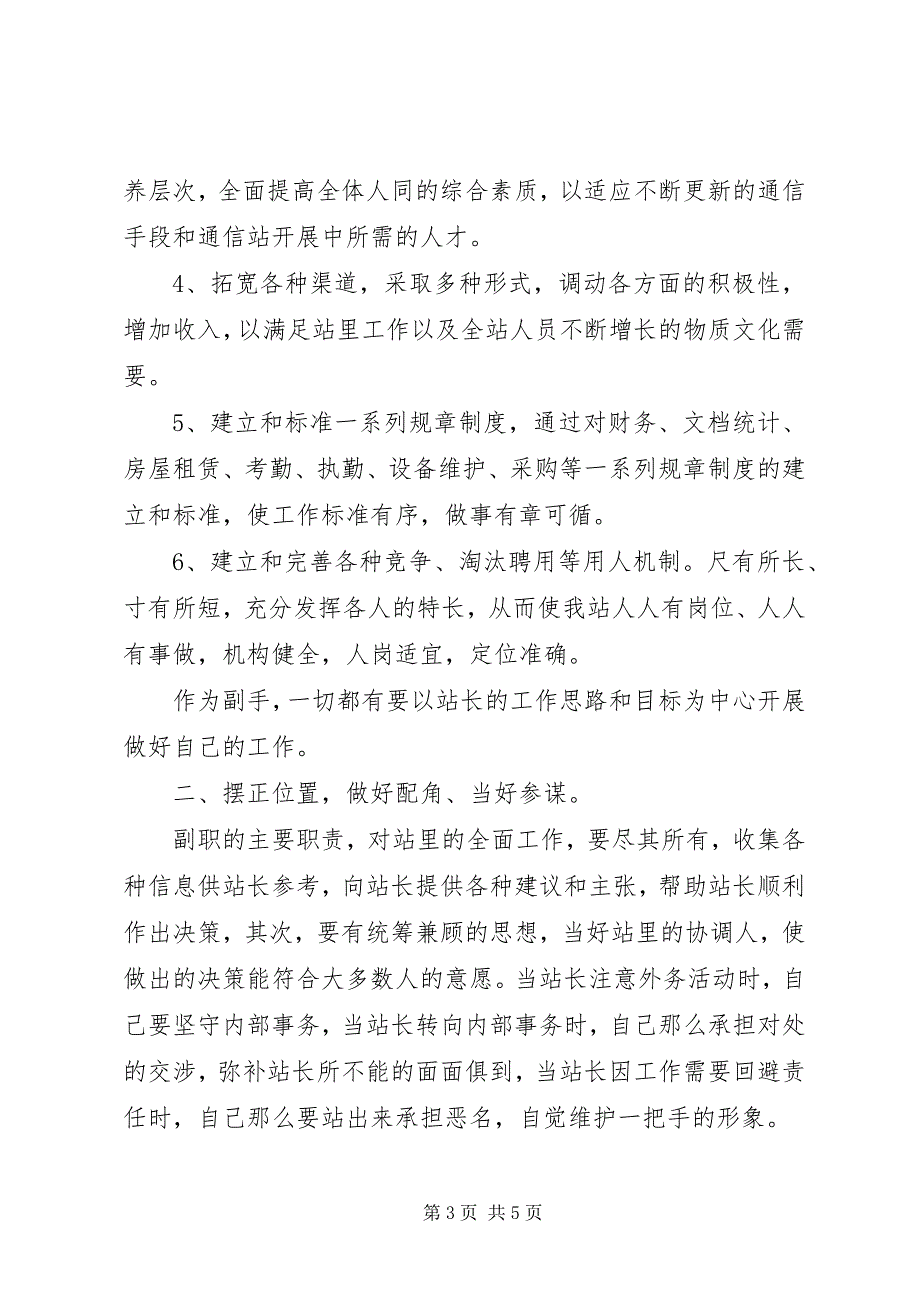 养层次，全面提高全体人同的综合素质，以适应不断更新的通信
手段和通信站开展中所需的人才。
4、拓宽各种渠道，采取多种形式，调动各方面的积极性，
增加收入，以满足站里工作以及全站人员不断增长的物质文化需
要。
5、建立和标准一系列规章制度，通过对财务、文档统计、
房屋租赁、考勤、执勤、设备维护、采购等一系列规章制度的建
立和标准，使工作标准有序，做事有章可循。
6、建立和完善各种竞争、淘汰聘用等用人机制。尺有所长、
寸有所短，充分发挥各人的特长，从而使我站人人有岗位、人人
有事做，机构健全，人岗适宜，定位准确。
作为副手，一切都有要以站长的工作思路和目标为中心开展
做好自己的工作。
二、摆正位置，做好配角、当好参谋。
副职的主要职责，对站里的全面工作，要尽其所有，收集各
种信息供站长参考，向站长提供各种建议和主张，帮助站长顺利
作出决策，其次，要有统筹兼顾的思想，当好站里的协调人，使
做出的决策能符合大多数人的意愿。当站长注意外务活动时，自
己要坚守内部事务，当站长转向内部事务时，自己那么承担对处
的交涉，弥补站长所不能的面面俱到，当站长因工作需要回避责
任时，自己那么要站出来承担恶名，自觉维护一把手的形象。
第 3 页 共 5 页